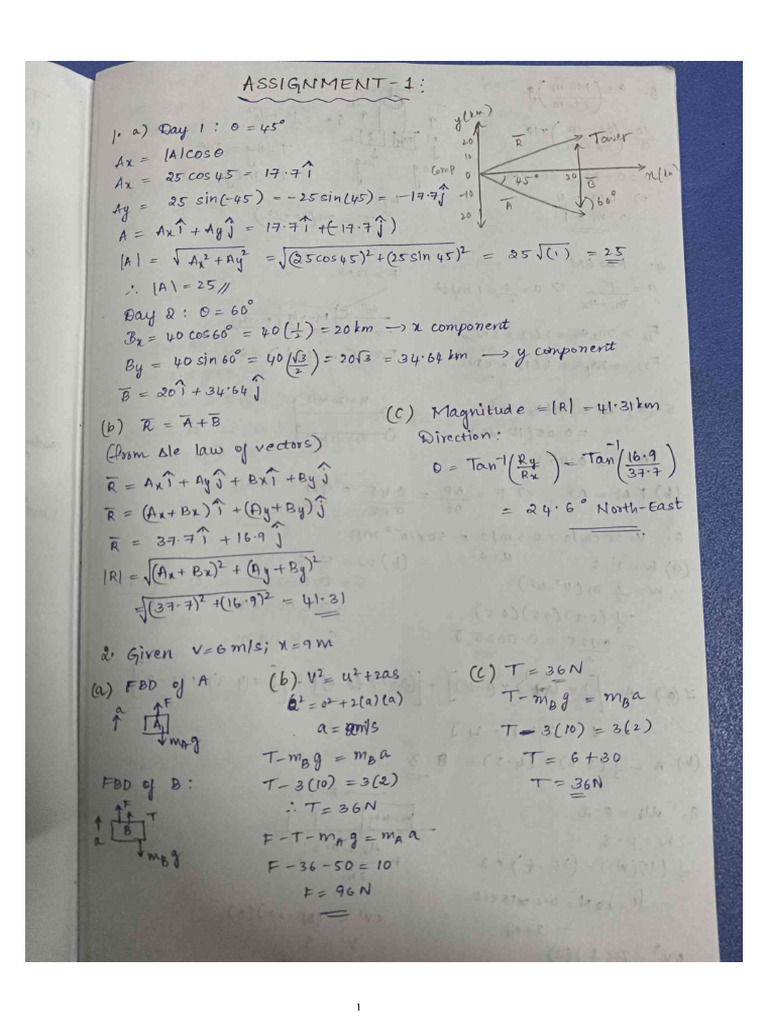 ASSIGNMENT-1:
1. a) Day 1 : θ = 45°
Ax = |A|cosθ
Ax = 25 cos 45 = 17.7 î
Ay = 25 sin(-45) = -25 sin(45) = -17.7 ĵ
A = Ax î + Ay ĵ = 17.7 î + (-17.7 ĵ)
|A| = √(Ax² + Ay²) = √((25cos45)² + (25 sin 45)²) = 25 √(1) = 25
∴ |A| = 25 //
Day 2 : θ = 60°
Bx = 40 cos60° = 40 (1/2) = 20 km → x component
By = 40 sin 60° = 40 (√3/2) = 20√3 = 34.64 km → y component
B̅ = 20 î + 34.64 ĵ
y(km)
20
10
0
-10
20
Comp
R̅
Tower
45°
20
B̅
x(km)
A̅
60°
(b) R̅ = A̅ + B̅
(from Δle law of vectors)
R̅ = Ax î + Ay ĵ + Bx î + By ĵ
R̅ = (Ax + Bx) î + (Ay + By) ĵ
R̅ = 37.7 î + 16.9 ĵ
|R| = √((Ax + Bx)² + (Ay + By)²)
= √((37.7)² + (16.9)²) = 41.31
(c) Magnitude = |R| = 41.31 km
Direction:
θ = Tan⁻¹(Ry/Rx) = Tan⁻¹(16.9/37.7)
= 24.6° North-East
2. Given v = 6 m/s; x = 9 m
(a) FBD of A
a
F
A
mAg
FBD of B:
F
T
B
a
mBg
(b). V² = u² + 2as
6² = 0² + 2(a)(9)
a = 2m/s
T - mBg = mBa
T - 3(10) = 3(2)
∴ T = 36N
F - T - mAg = mAa
F - 36 - 50 = 10
F = 96N
(c) T = 36N
T - mBg = mBa
T - 3(10) = 3(2)
T = 6 + 30
T = 36N
1